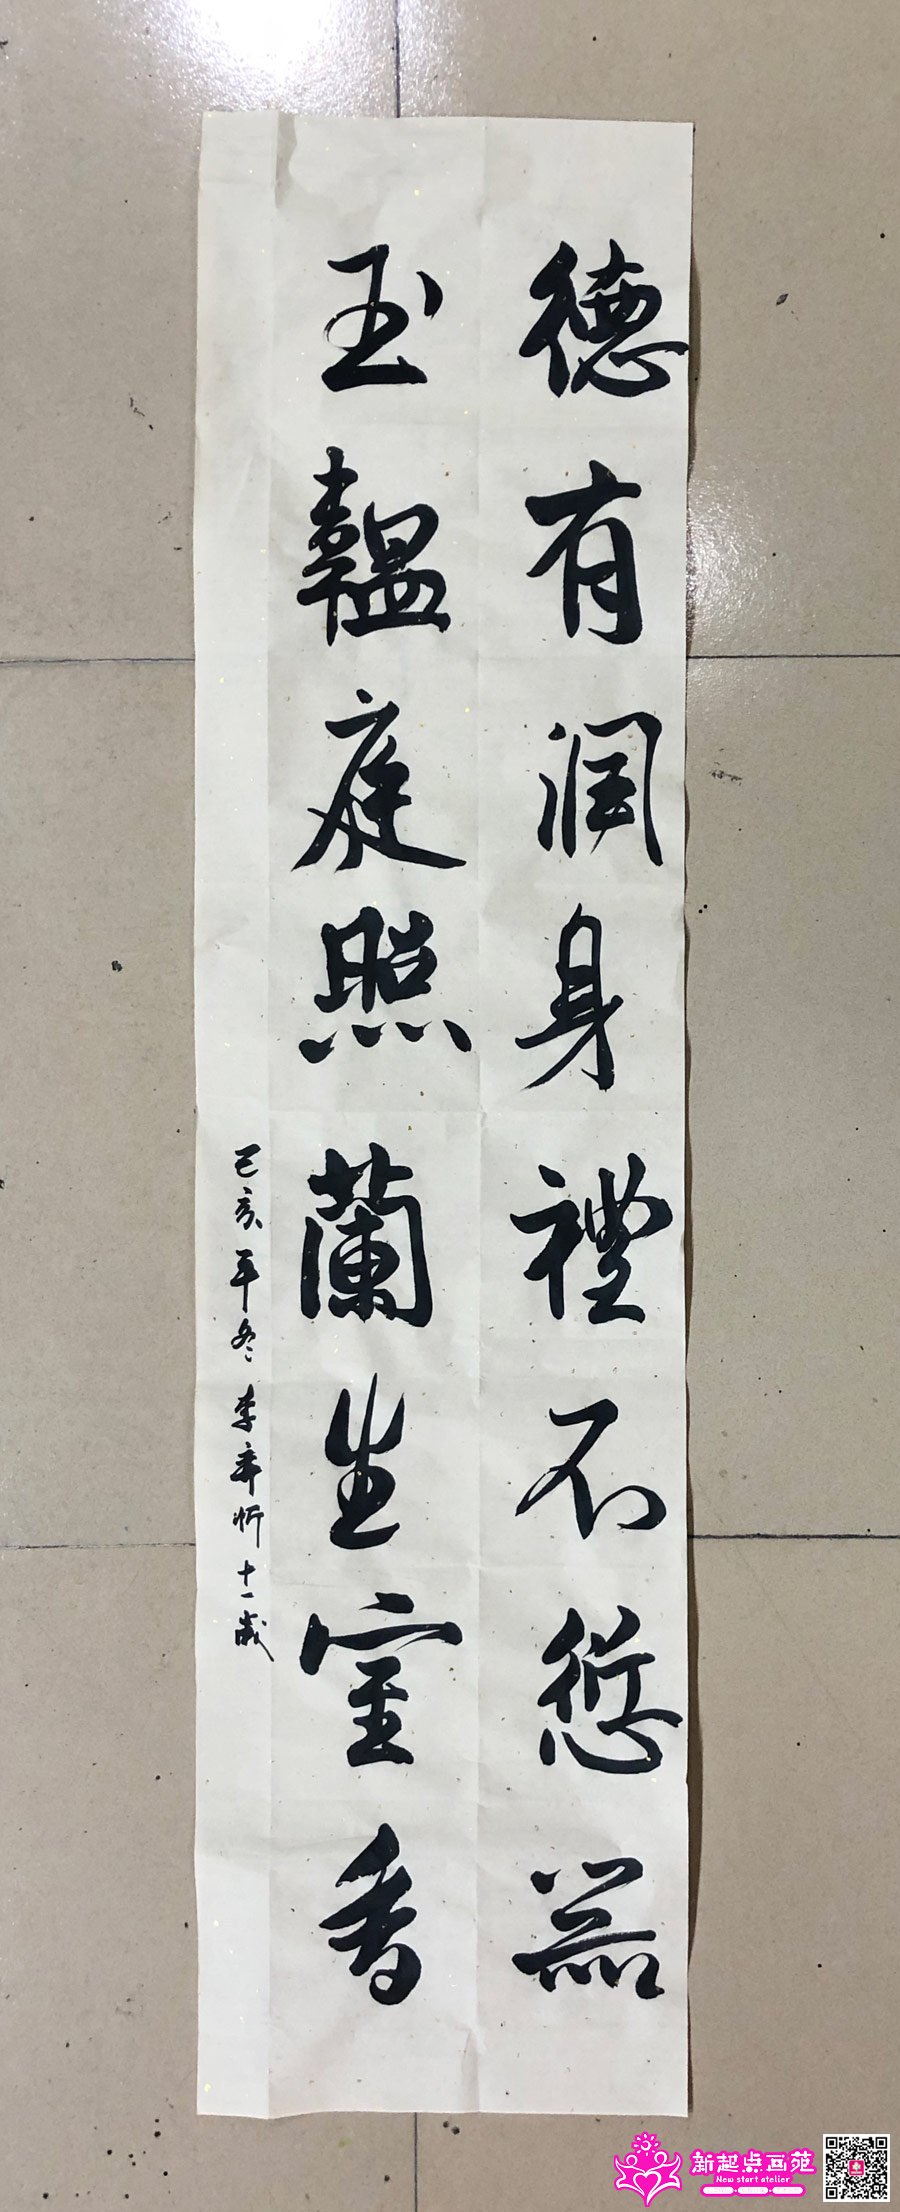 德有潤身禮不愆器
玉韞庭照蘭生室香
己亥年冬 李弈忻十一歲
新起点画苑
New start atelier